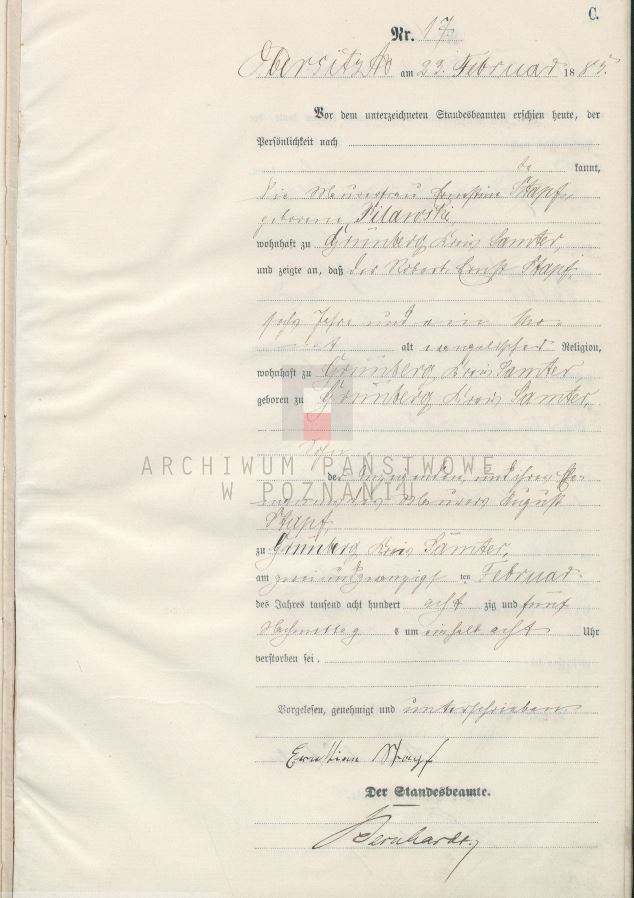 C.
Nr. 17.
Obersitzko am 23. Februar 1885.
Vor dem unterzeichneten Standesbeamten erschien heute, der
Persönlichkeit nach
be kannt,
die Maurerfrau Ernestine Stapf,
geborene Pilawski,
wohnhaft zu Grünberg, Kreis Samter,
und zeigte an, daß der Robert Ernst Stapf,
sechs Jahre und ein Mo-
nat alt evangelischer Religion,
wohnhaft zu Grünberg, Kreis Samter,
geboren zu Grünberg, Kreis Samter,
Sohn
ARCHIWUM PAŃSTWOWE
der Anzeigenden, und ihres Ehe-
W POZNANIU
des Maurers August
Stapf,
zu Grünberg, Kreis Samter,
am zweiundzwanzigsten Februar
des Jahres tausend acht hundert achtzig und fünf
Nachmittags um einhalb acht Uhr
verstorben sei.
Vorgelesen, genehmigt und unterschrieben
Stapf
Der Standesbeamte.
Bernhardt